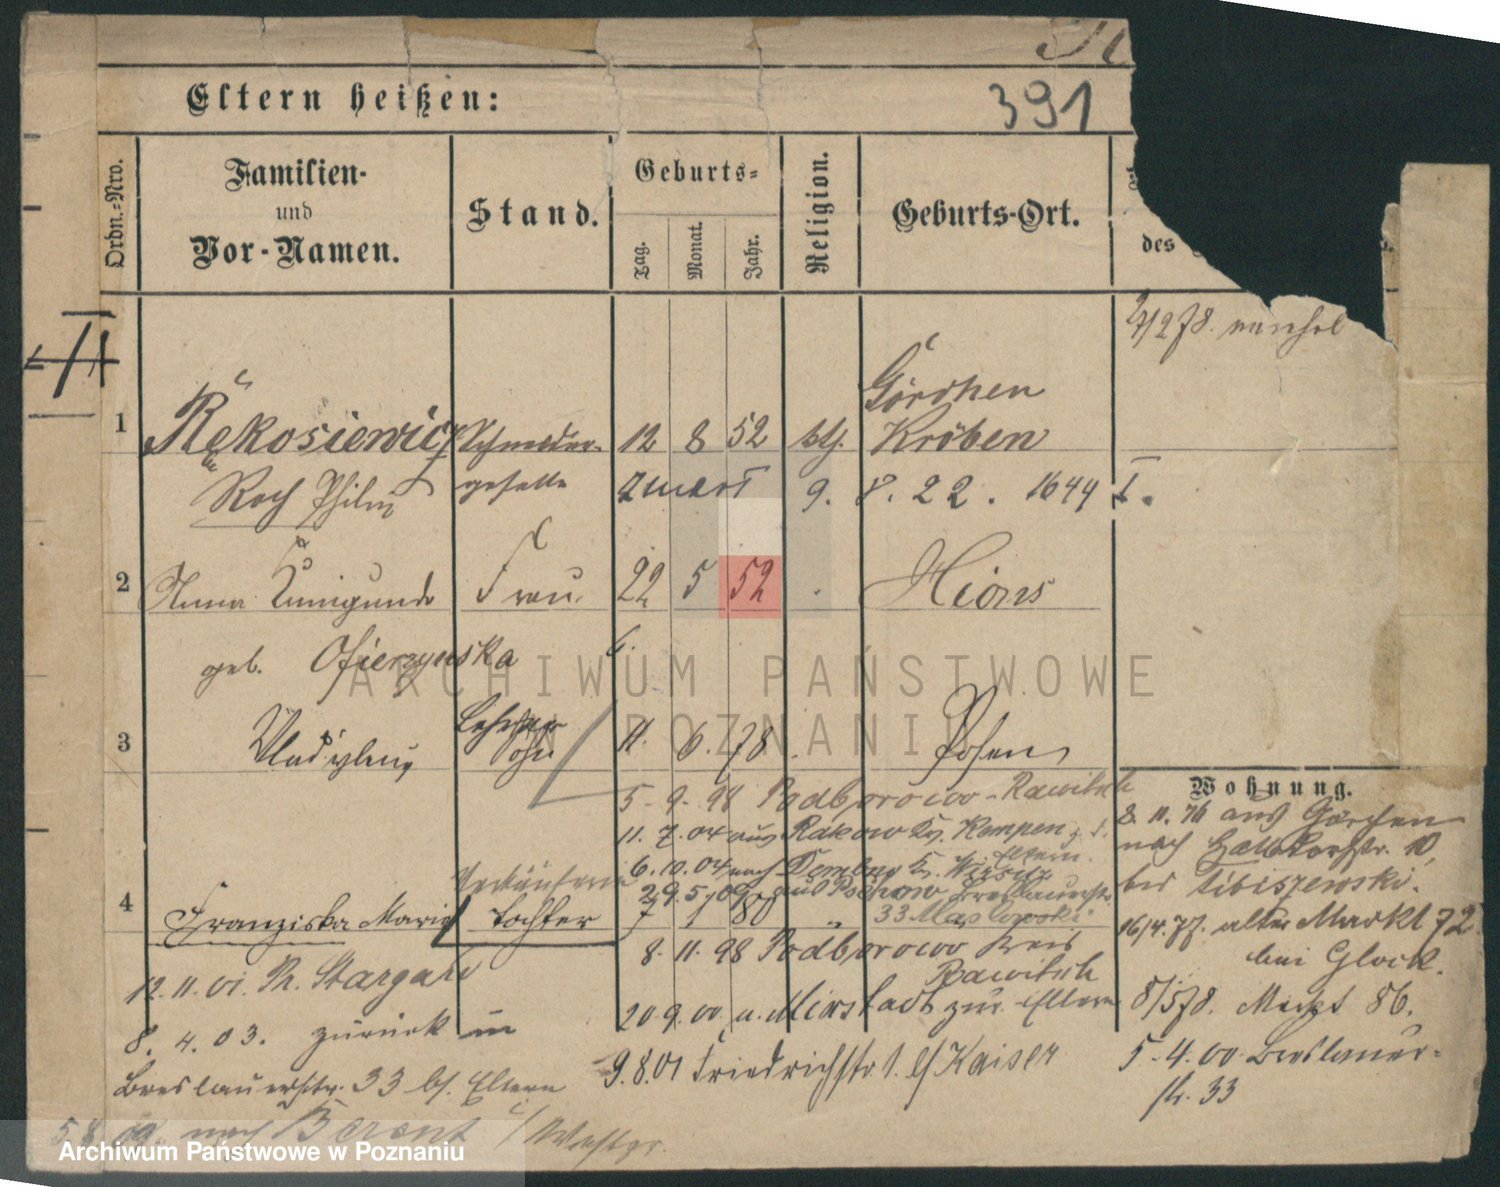 391
Eltern heißen:
Ordn.-Nro.
Familien-
und
Vor-Namen.
Stand.
Geburts-
Tag.
Monat.
Jahr.
Religion.
Geburts-Ort.
des
2/1278.
1
Rękosiewicz
Schneider-
geselle
12 8 52
kth.
Görchen
Kröben
Roch
9. 8. 22. 1644 I.
2
Anna Kunigunde
Frau
22 5 52
geb. Ofierzynska
3
11. 6. 78
Posen
5-9-98 Podborowo-Rawitsch
11. 7. 04 aus Rakow Kr. Kempen z. d.
Eltern.
6. 10. 04 nach
29. 5. 09 aus
33 Maslowski
4
Verkäuferin
Franziska Maria
Tochter
7 1 80
8. 11. 98 Podborowo Kreis
Rawitsch
12. 11. 01. Pr. Stargard
20 9. 00 a. Mixstadt zur. Eltern
8. 4. 03. zurück in
Breslauerstr. 33 bf. Eltern
9.8.01 Friedrichstr 1. b/Kaiser
nach Berent i/Westpr.
Wohnung.
8. 11. 76 aus Görchen
nach Halbdorfstr. 10,
bei Libiszewski.
16/4. 77. alter Markt 72
bei Glock.
8/5 78. Markt 86.
5-4.00 Breslauer-
str. 33
ARCHIWUM PAŃSTWOWE
W POZNANIU
Archiwum Państwowe w Poznaniu